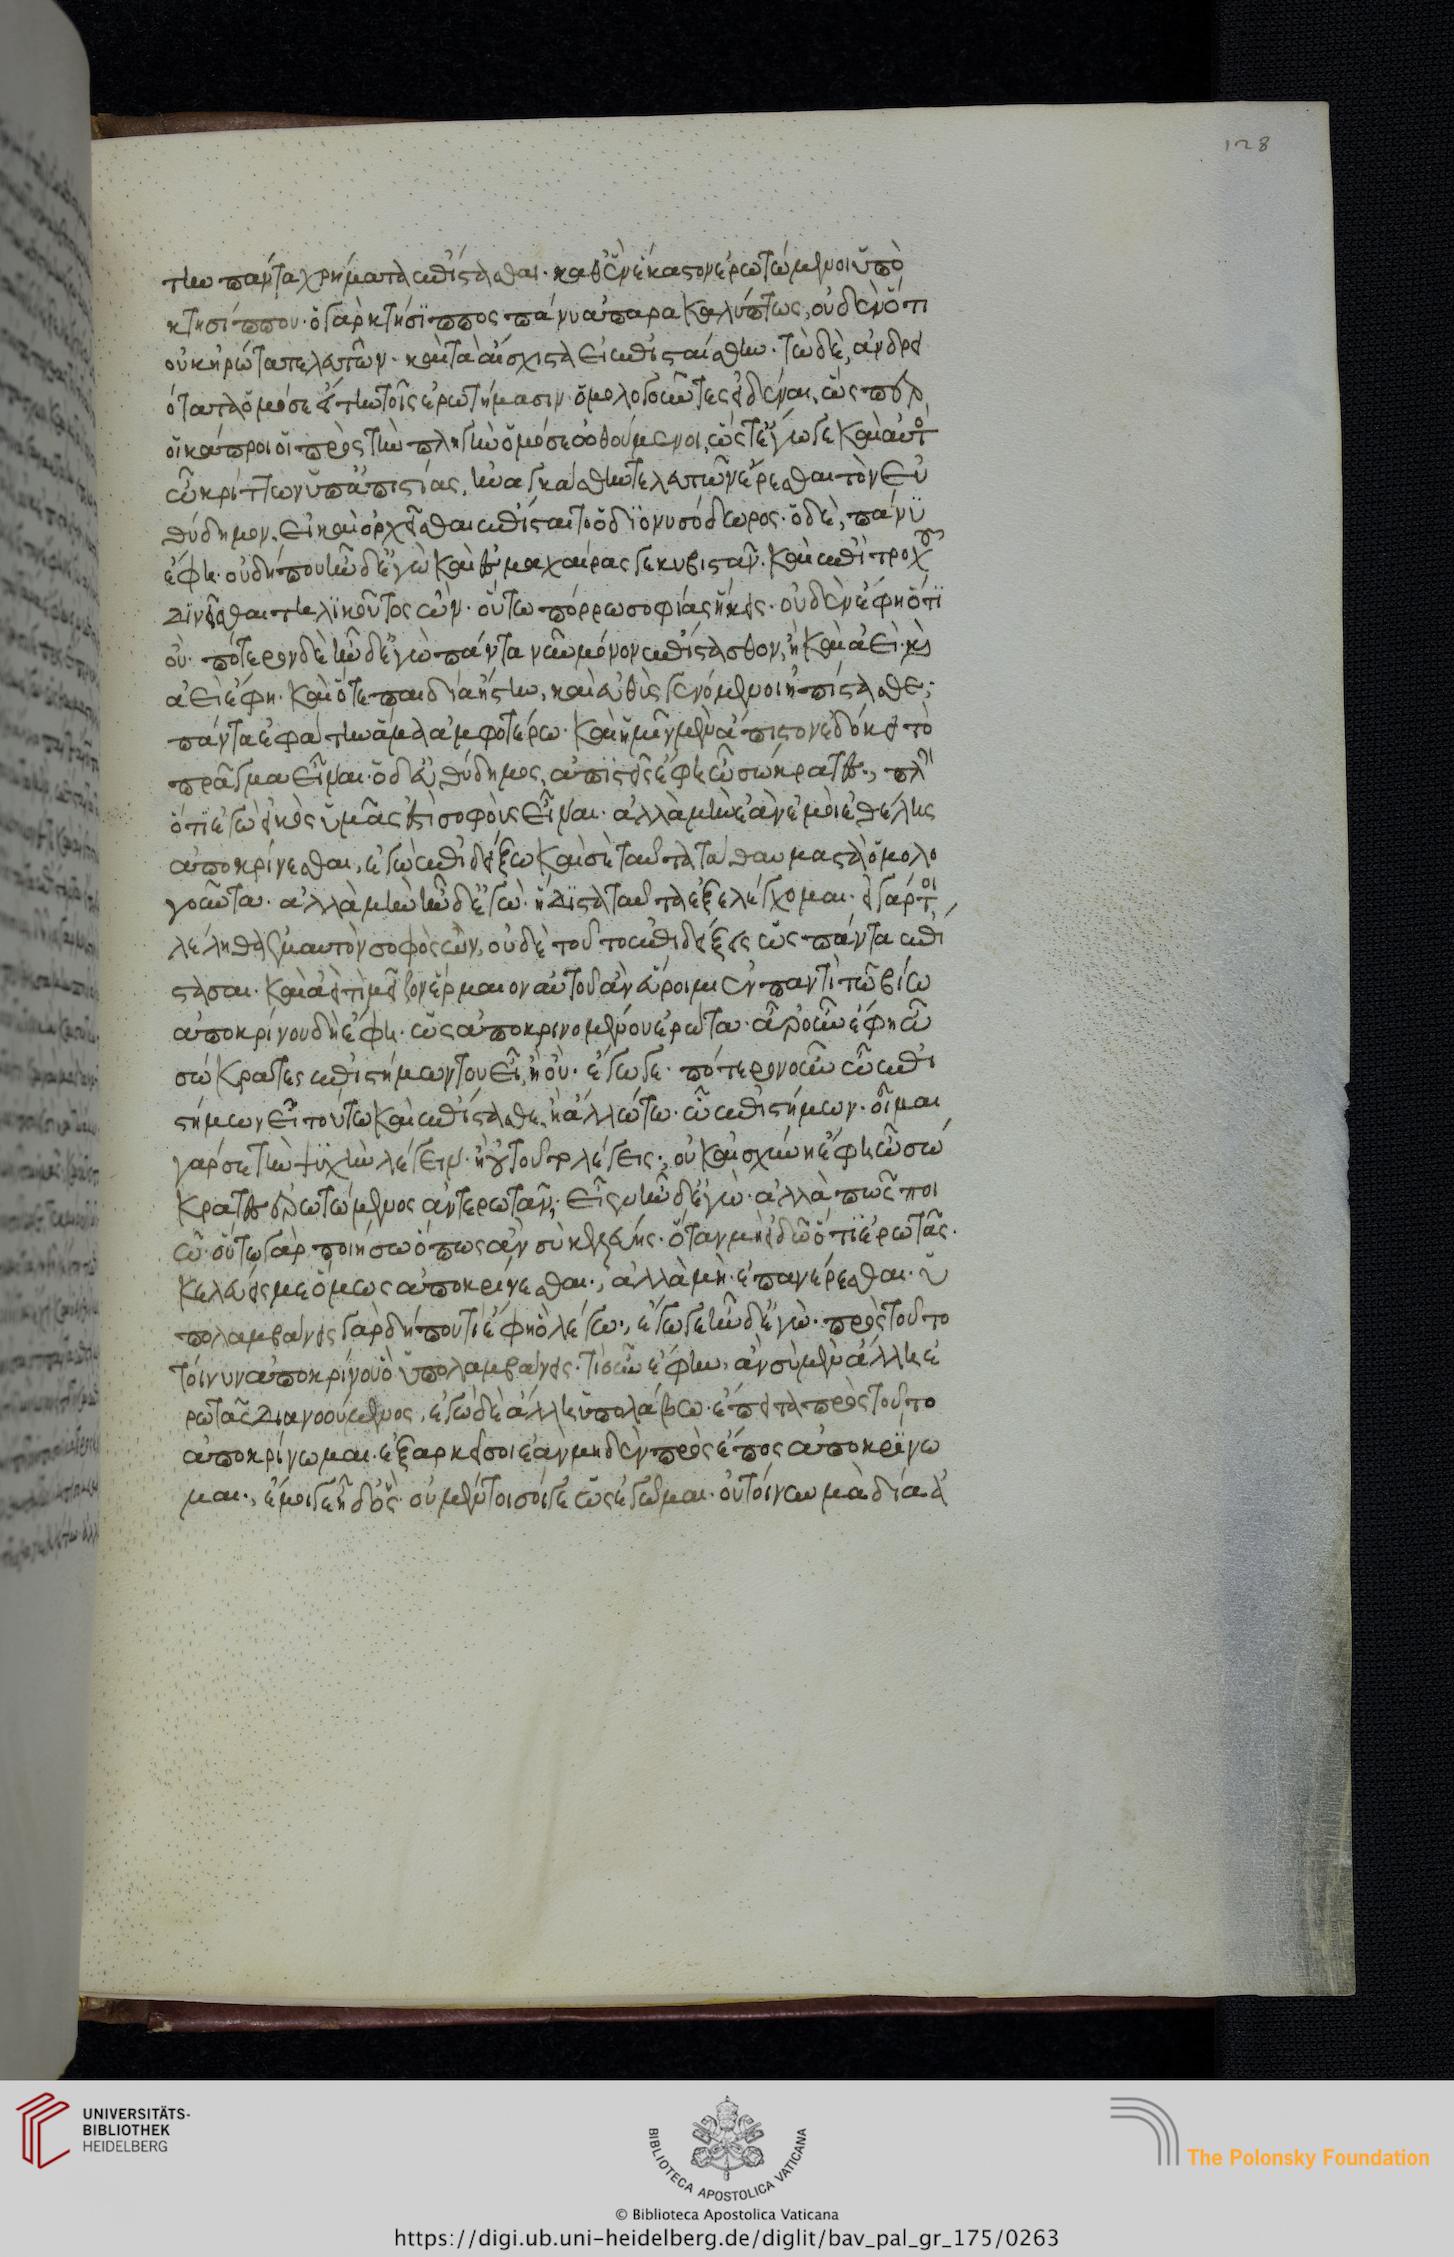 τὴν πάντα χρήματα ἐπίστασθαι· καθ' ἓν ἕκαστον ἐρωτώμενοι ὑπὸ
κτησίππου· ὁ γὰρ κτήσιππος πάνυ ἀπαρακαλύπτως, οὐδὲν ὅτι
οὐκ ἠρώτα τελευτῶν· καὶ τὰ αἴσχιστα εἰ ἐπισταίσθην· τὼ δὲ, ἀνδρει
ότατα ὁμόσε ἤτην τοῖς ἐρωτήμασιν ὁμολογοῦντες εἰδέναι, ὥσπερ
οἱ κάπροι οἱ πρὸς τὴν πληγὴν ὁμόσε ὠθούμενοι, ὥστ' ἔγωγε καὶ αὐτὸς
ὦ κρίττων ὑπ' ἀπιστίας, ἠναγκάσθην τελευτῶν ἔρεσθαι τὸν εὐ
θύδημον, εἰ καὶ ὀρχεῖσθαι ἐπίσταιτο ὁ διονυσόδωρος· ὁ δὲ, πάνυ
ἔφη· οὐ δήπου ἦν δ' ἐγὼ καὶ ἐς μαχαίρας γε κυβιστᾶν· καὶ ἐπὶ τροχοῦ
δινεῖσθαι τηλικοῦτος ὤν· οὕτω πόρρω σοφίας ἥκεις· οὐδὲν ἔφη ὅτι
οὐ· πότερον δὲ ἦν δ' ἐγὼ πάντα νῦν μόνον ἐπίστασθον, ἢ καὶ ἀεί· καὶ
ἀεὶ ἔφη· καὶ ὅτε παιδία ἤστην, καὶ εὐθὺς γενόμενοι ἠπίστασθε;
πάντα ἐφάτην ἅμα ἀμφοτέρω· καὶ ἡμῖν μὲν ἄπιστον ἐδόκει τὸ
πρᾶγμα εἶναι· ὁ δ' εὐθύδημος, ἀπιστεῖς ἔφη ὦ σώκρατες·, πλὴν
ὅτι ἐγὼ εἰκὸς ὑμᾶς ἐστὶ σοφοὺς εἶναι· ἀλλὰ μὴν ἐὰν ἐμοὶ ἐθέλης
ἀποκρίνεσθαι, ἐγὼ ἐπιδείξω καὶ σὲ ταῦτα τὰ θαυμαστὰ ὁμολο
γοῦντα· ἀλλὰ μὴν ἦν δ' ἐγὼ· ἥδιστα ταῦτα ἐξελέγχομαι· εἰ γάρ τοι
λέληθα ἐμαυτὸν σοφὸς ὤν, σὺ δὲ τοῦτο ἐπιδείξεις ὡς πάντα ἐπί
σταμαι· καὶ ἀεὶ τί μεῖζον ἕρμαιον αὐτοῦ ἂν εὕροιμι ἐν παντὶ τῷ βίω
ἀποκρίνου δὴ ἔφη· ὡς ἀποκρινομένου ἐρώτα· ἆρ' οὖν ἔφη ὦ
σώκρατες ἐπιστήμων του εἶ, ἢ οὔ· ἔγωγε· πότερον οὖν ὧ ἐπι
στήμων εἶ τούτω καὶ ἐπίστασαι, ἢ ἄλλω τω· ὧ ἐπιστήμων· οἶμαι
γάρ σε τὴν ψυχὴν λέγειν· ἢ οὐ τοῦτο λέγεις·, οὐκ αἰσχύνη ἔφη ὦ σώ
κρατες ἐρωτώμενος ἀντερωτᾶν; εἶεν ἦν δ' ἐγὼ· ἀλλὰ πῶς ποι
ῶ· οὕτω γὰρ ποιήσω ὅπως ἂν σὺ κελεύης· ὅταν μὴ εἰδῶ ὅτι ἐρωτᾶς·
κελεύεις με ὅμως ἀποκρίνεσθαι·, ἀλλὰ μὴ ἐπανέρεσθαι· ὑ
πολαμβάνεις γὰρ δήπου τι ἔφη ὃ λέγω·, ἔγωγε ἦν δ' ἐγὼ· πρὸς τοῦτο
τοίνυν ἀποκρίνου ὃ ὑπολαμβάνεις· τί οὖν ἔφην, ἂν σὺ μὲν ἄλλη ἐ
ρωτᾶς διανοούμενος, ἐγὼ δὲ ἄλλη ὑπολάβω· ἔπειτα πρὸς τοῦτο
ἀποκρίνωμαι· ἐξαρκεῖ σοι ἐὰν μηδὲν πρὸς ἔπος ἀποκρίνω
μαι·, ἔμοιγε ἦ δ' ὅς· οὐ μέντοι σοίγε ὡς ἐγᾦμαι· οὐ τοίνυν μὰ δία ἀ
128
UNIVERSITÄTS-
BIBLIOTHEK
HEIDELBERG
BIBLIOTECA APOSTOLICA VATICANA
The Polonsky Foundation
© Biblioteca Apostolica Vaticana
https://digi.ub.uni-heidelberg.de/diglit/bav_pal_gr_175/0263